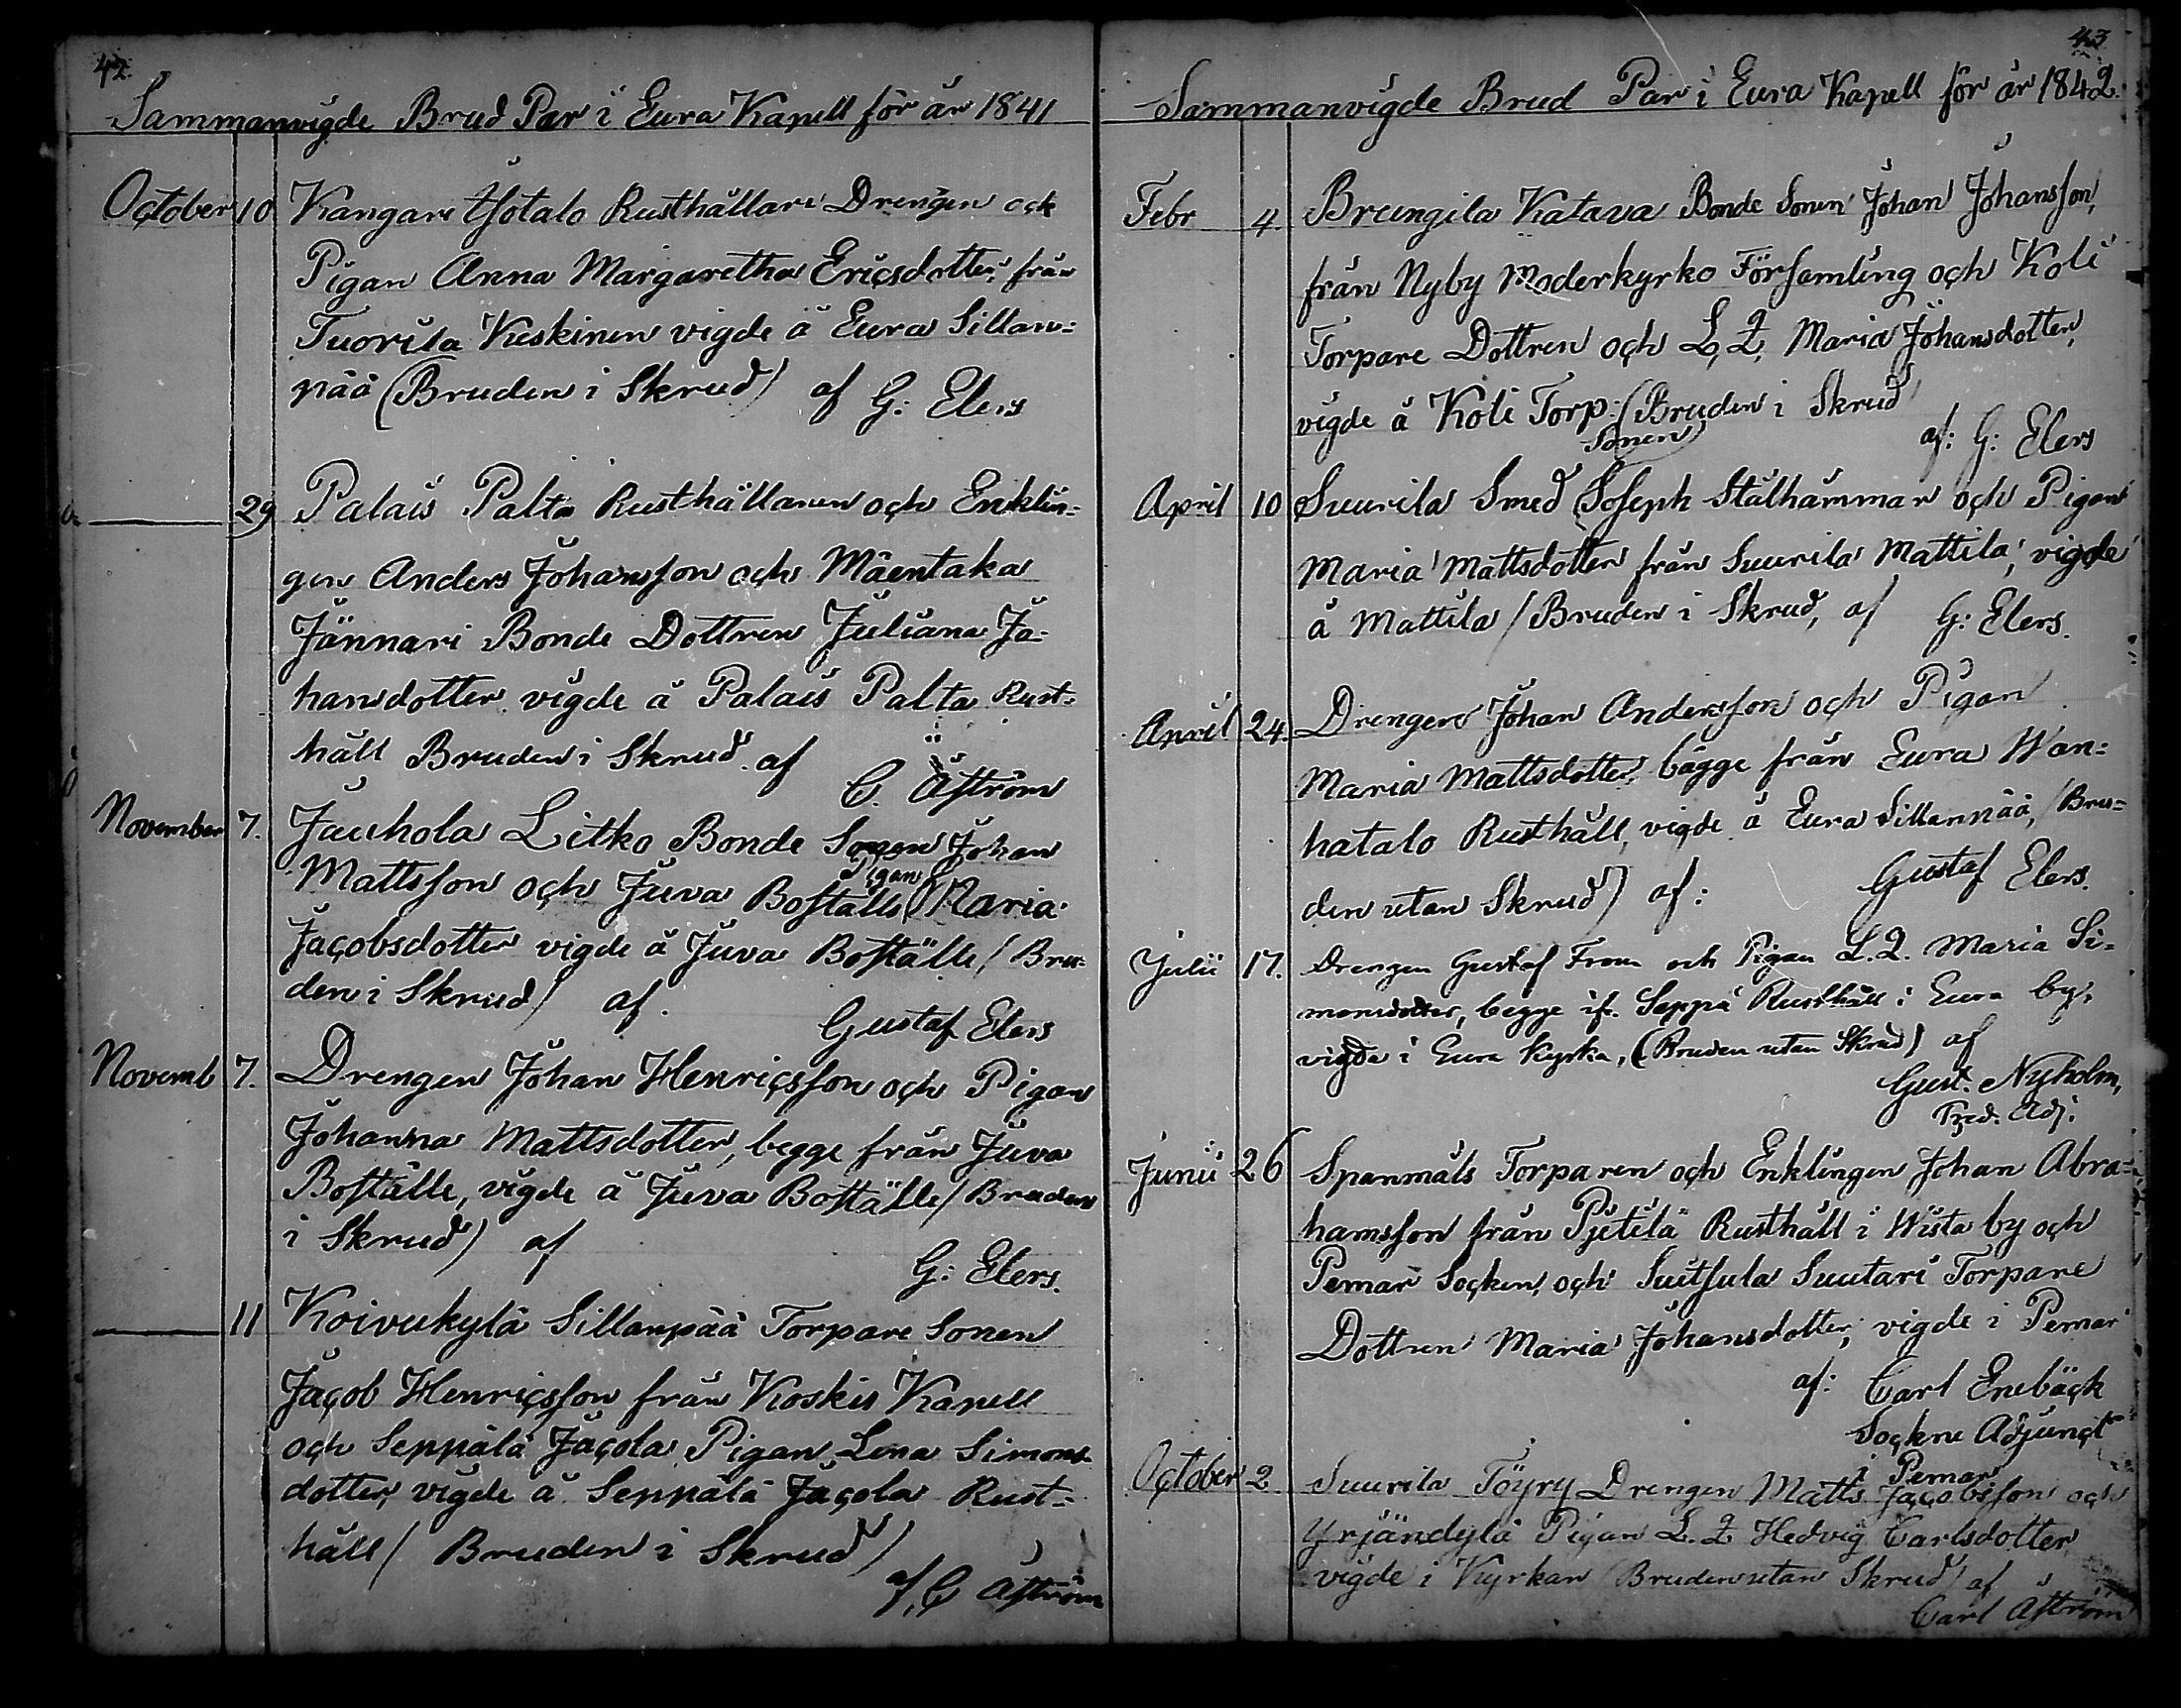 42.
Sammanvigde Brud Par i Eura Kapell för år 1841
October 10 Kangare Ysotalo Rusthållare Drengen och
Pigan Anna Margaretha Ericsdotter, från
Tuorila Keskinen vigde å Eura Sillan=
pää (Bruden i Skrud) af G: Elers
29 Palais Palta Rusthållaren och Enklin=
gen Anders Johansson och Mäentaka
Jännäri Bonde Dottren Juliana Jo=
hansdotter vigde å Palais Palta Rust=
håll Bruden i Skrud. af
C. Åström
November 7. Jauhola Litko Bonde Sonen Johan
Mattsson och Juva Boställs Pigan Maria
Jacobsdotter vigde å Juva Boställe / Bru=
den i Skrud) af.
Gustaf Elers
Novemb 7. Drengen Johan Henricsson och Pigan
Johanna Mattsdotter, begge från Juva
Boställe, vigde å Juva Boställe / Bruden
i Skrud) af
G: Elers.
11 Koivukylä Sillanpää Torpare Sonen
Jacob Henricsson från Koskis Kapell
och Seppälä Jacola Pigan Lena Simons=
dotter, vigde å Seppälä Jacola Rust=
håll / Bruden i Skrud)
af, C Åström
43
Sammanvigde Brud Par i Eura Kapell för år 1842.
Febr 4. Brungila Katava Bonde Sonen Johan Johansson,
från Nyby Moderkyrko Församling och Koli
Torpare Dottren och L, Q, Maria Johansdotter,
vigde å Koli Torp: (Bruden i Skrud
af: G: Elers
Sonen
April 10 Suurila Smed Joseph Stålhammar och Pigan
Maria Mattsdotter från Suurila Mattila, vigde
å Mattila / Bruden i Skrud, af G: Elers.
April 24. Drengen Johan Andersson och Pigan
Maria Mattsdotter, bägge från Eura Wan=
hatalo Rusthåll, vigde å Eura Sillanpää, / Bru=
den utan Skrud) af: Gustaf Elers.
Julii 17. Drengen Gustaf From och Pigan L. Q. Maria Si=
monsdotter, begge ifr. Seppä Rusthåll i Eura by,
vigde i Eura Kyrka, (Bruden utan Skrud) af
Gust. Nyholm,
Pred. Adj.
Junii 26 Spanmåls Torparen och Enklingen Johan Abra=
hamsson från Pjetilä Rusthåll i Wista by och
Pemar Socken, och Suitsula Suutari Torpare
Dottren Maria Johansdotter, vigde i Pemar
af: Carl Enebäck
Sockne Adjunct
i Pemar
October 2 Suurila Töyry Drengen Matts Jacobsson och
Yrjänäylä Pigan L. Q Hedvig Carlsdotter
vigde i Kyrkan (Bruden utan Skrud) af
Carl Åström